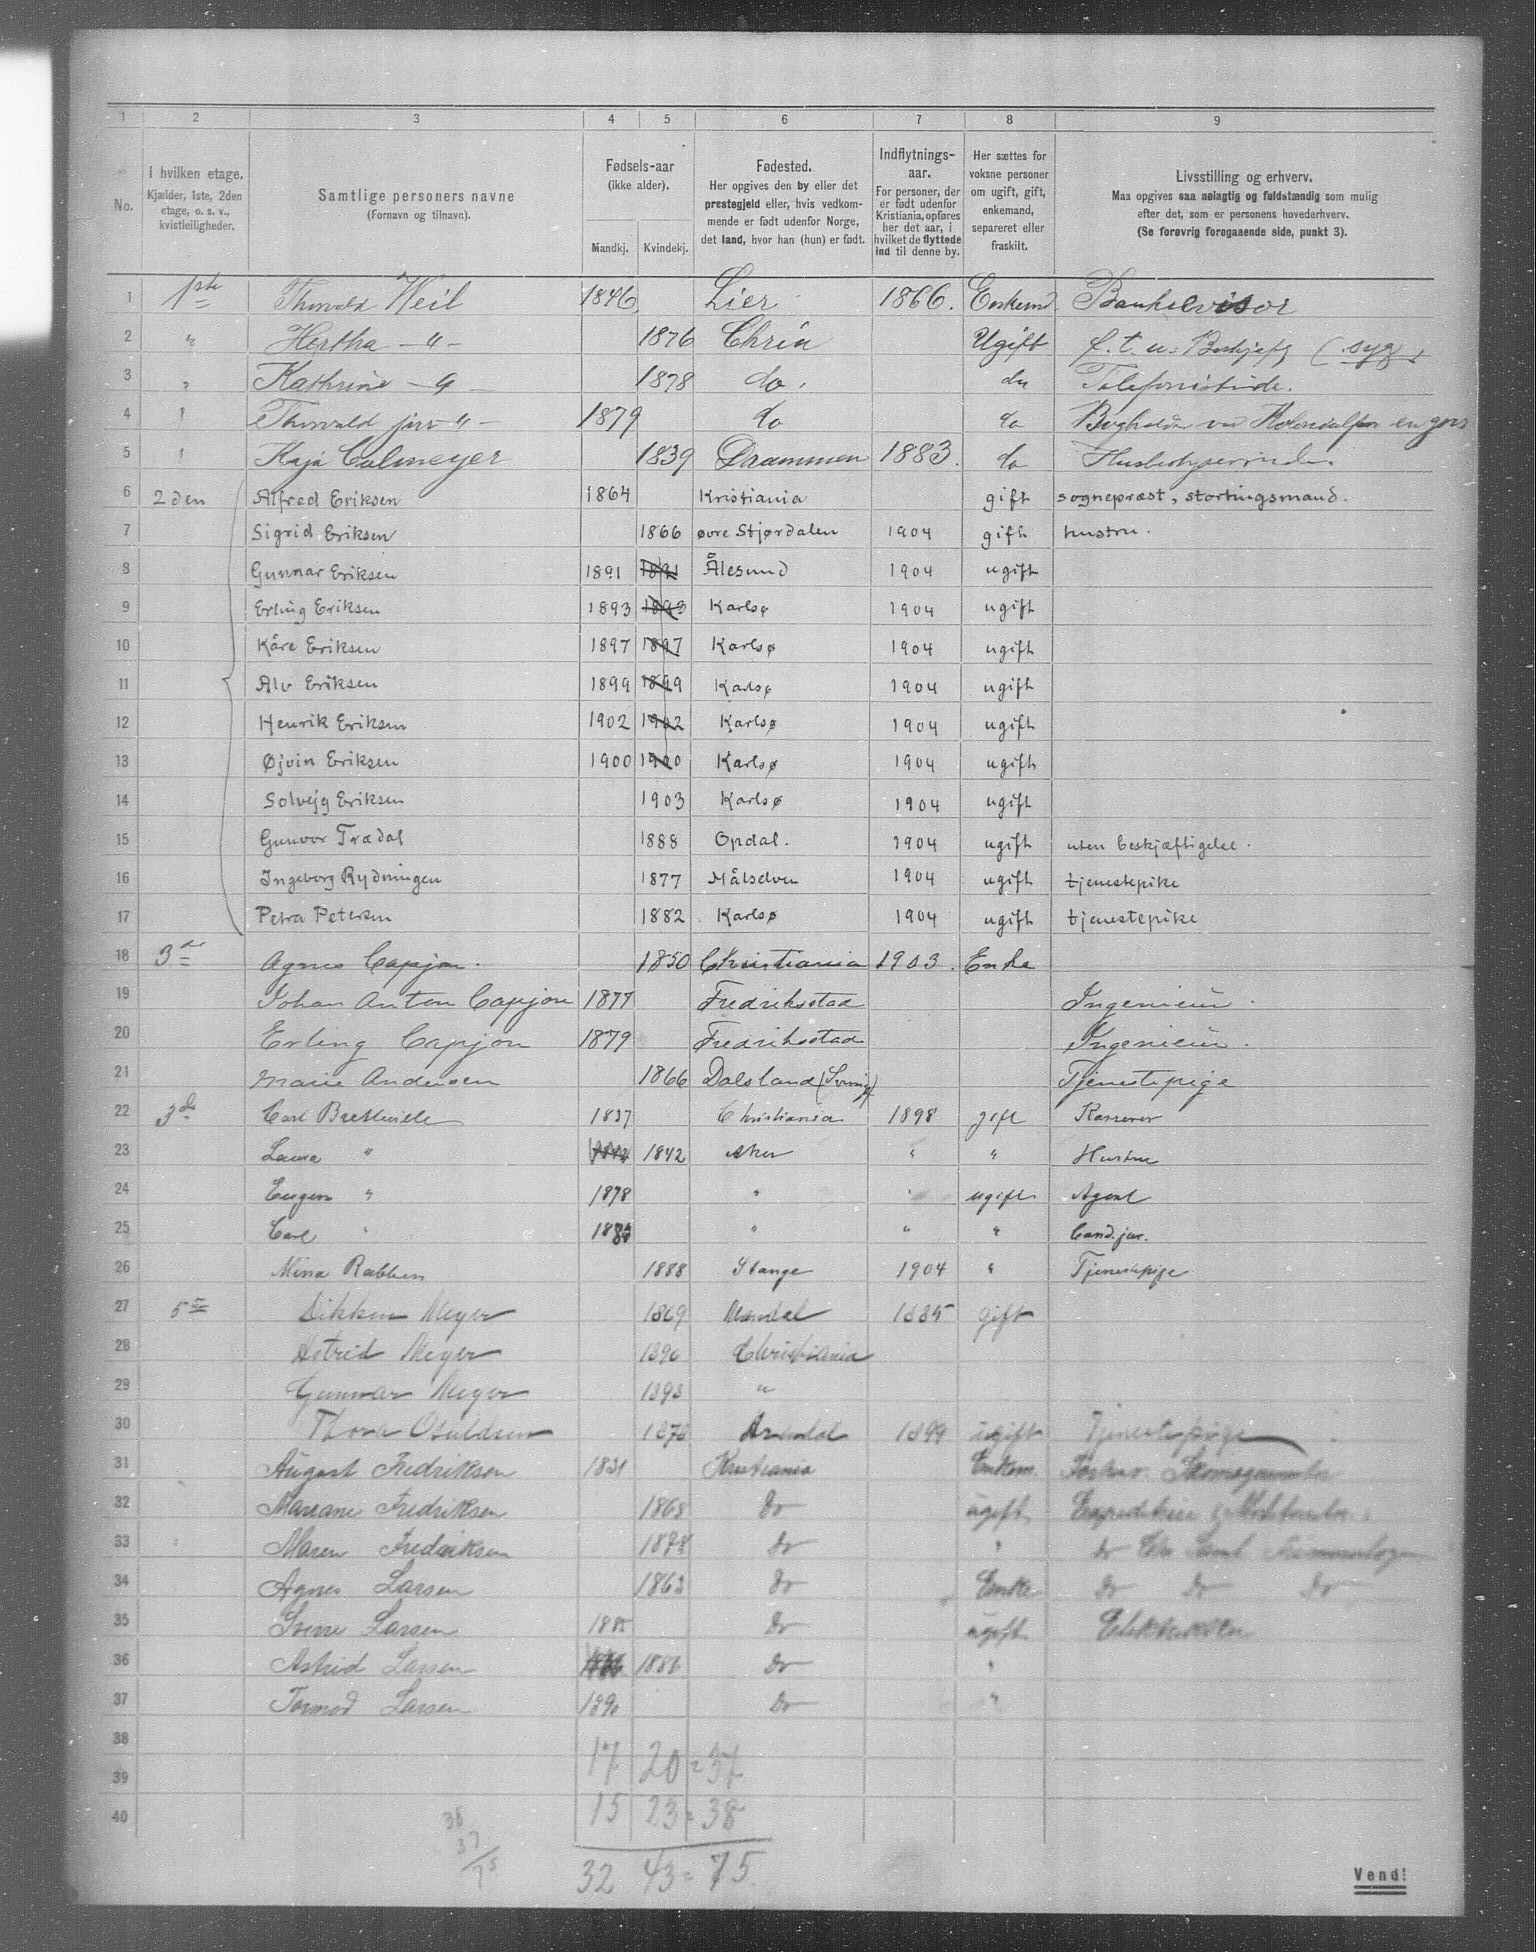 1 2 3 4 5 6 7 8 9
No.
I hvilken etage.
Kjælder, 1ste, 2den
etage, o. s. v.,
kvistleiligheder.
Samtlige personers navne
(Fornavn og tilnavn).
Fødsels-aar
(ikke alder).
Mandkj. Kvindekj.
Fødested.
Her opgives den by eller det
prestegjeld eller, hvis vedkom-
mende er født udenfor Norge,
det land, hvor han (hun) er født.
Indflytnings-
aar.
For personer, der
er født udenfor
Kristiania, opføres
her det aar, i
hvilket de flyttede
ind til denne by.
Her sættes for
voksne personer
om ugift, gift,
enkemand,
separeret eller
fraskilt.
Livsstilling og erhverv.
Maa opgives saa nøiagtig og fuldstændig som mulig
efter det, som er personens hovederhverv.
(Se forøvrig foregaaende side, punkt 3).
1 1ste Thorvald Weil 1846 Lier 1866. Enkemd Bankrevisor
2 " Hertha -"- 1876 Chria Ugift f. t. u. Beskjæft (syg)
3 " Kathrine -"- 1878 do. do Telefonistinde.
4 " Thorvald junr -"- 1879 do do Bogholder ved Kolonialfor en gros
5 " Kaja Culmeyer 1839 Drammen 1883. do Husbestyrerinde
6 2den Alfred Eriksen 1864 Kristiania gift sognepræst, stortingsmand.
7 Sigrid Eriksen 1866 øvre Stjørdalen 1904 gift hustru.
8 Gunnar Eriksen 1891 1891 Ålesund 1904 ugift
9 Erling Eriksen 1893 1893 Karlsø 1904 ugift
10 Kåre Eriksen 1897 1897 Karlsø 1904 ugift
11 Alv Eriksen 1899 1899 Karlsø 1904 ugift
12 Henrik Eriksen 1902 1902 Karlsø 1904 ugift
13 Øjvin Eriksen 1900 1900 Karlsø 1904 ugift
14 Solvejg Eriksen 1903 Karlsø 1904 ugift
15 Gunvor Trædal 1888 Opdal. 1904 ugift uten beskjæftigelse.
16 Ingeborg Rydningen 1877 Målselven 1904 ugift tjenestepike
17 Petra Petersen 1882 Karlsø 1904 ugift tjenestepike
18 3de Agnes Capjon. 1850 Christiania 1903. Enke
19 Johan Anton Capjon 1877 Fredriksstad Ingeniør.
20 Erling Capjon 1879 Fredriksstad Ingeniør.
21 Marie Andersen 1866 Dalsland (Sverige) Tjenestepige
22 3de Carl Bretteville 1837 Christiania 1898 gift Kasserer
23 Laura " 1842 Aker " " Hustru
24 Eugen " 1878 " " ugift Agent
25 Carl " " " " Cand. jur.
26 Mina Rabben 1888 Stange 1904 " Tjenestepige
27 5te Dikken Meyer 1869 Mandal 1885 gift
28 Astrid Meyer 1890 Christiania
29 Gunnar Meyer 1893 "
30 Thora Osuldsen Arendal 1899 ugift Tjenestepige
31 August Fredriksen 1831 Kristiania Enkem.
32 Mariane Fredriksen 1868 Do ugift
33 Maren Fredriksen Do " do
34 Agnes Larsen 1863 Do Enke Do Do Do
35 Sverre Larsen 1885 Do ugift
36 Astrid Larsen 1886 Do "
37 Tormod Larsen 1890 Do "
38 17 20 = 37
39
40 15 23 = 38
38
37
75
32 43 = 75.
Vend!